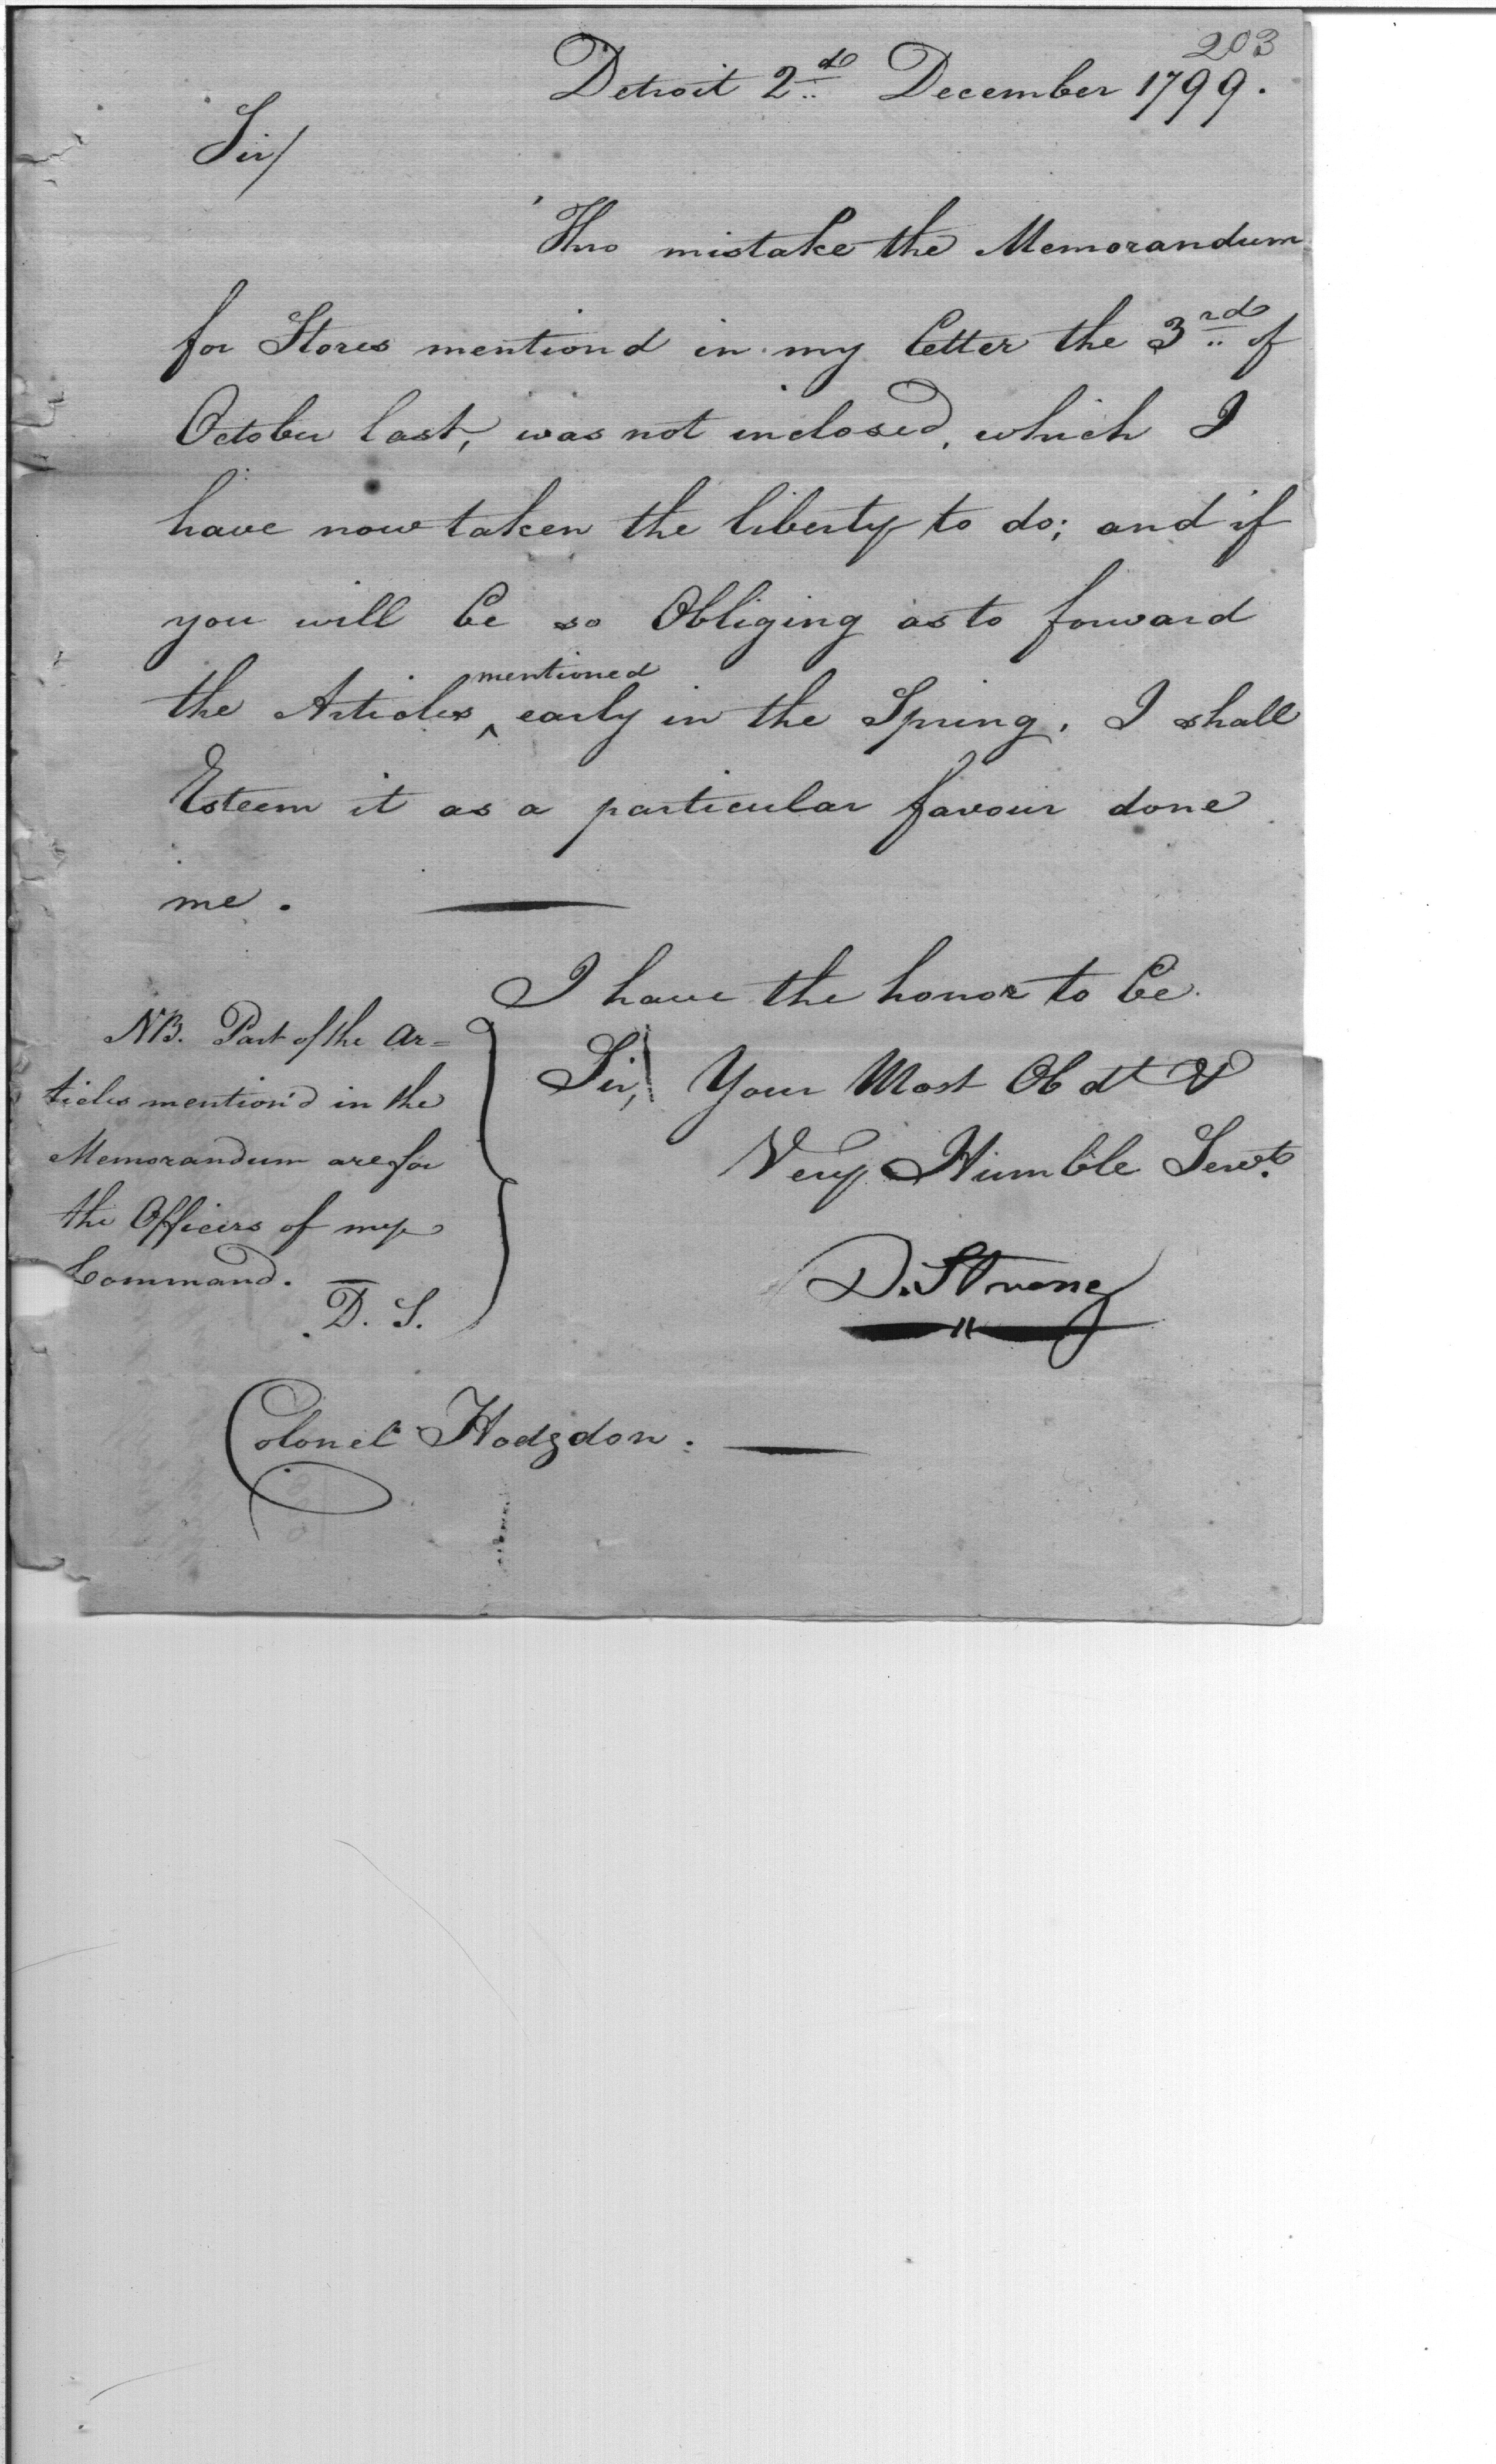 203
Detroit 2d December 1799.
Sir/
Thro mistake the Memorandum
for Stores mentiond in my letter the 3rd of
October last, was not inclosed, which I
have now taken the liberty to do; and if
you will be so Obliging as to forward
mentioned
the Articles ^ early in the Spring, I shall
Esteem it as a particular favour done
me.
I have the honor to be
Sir, Your Most Obdt &
Very Humble Servt.
D. Strong
NB. Part of the Ar=
ticles mention'd in the
Memorandum are for
the Officers of my
Command.
D. S.
Colonel Hodgdon.